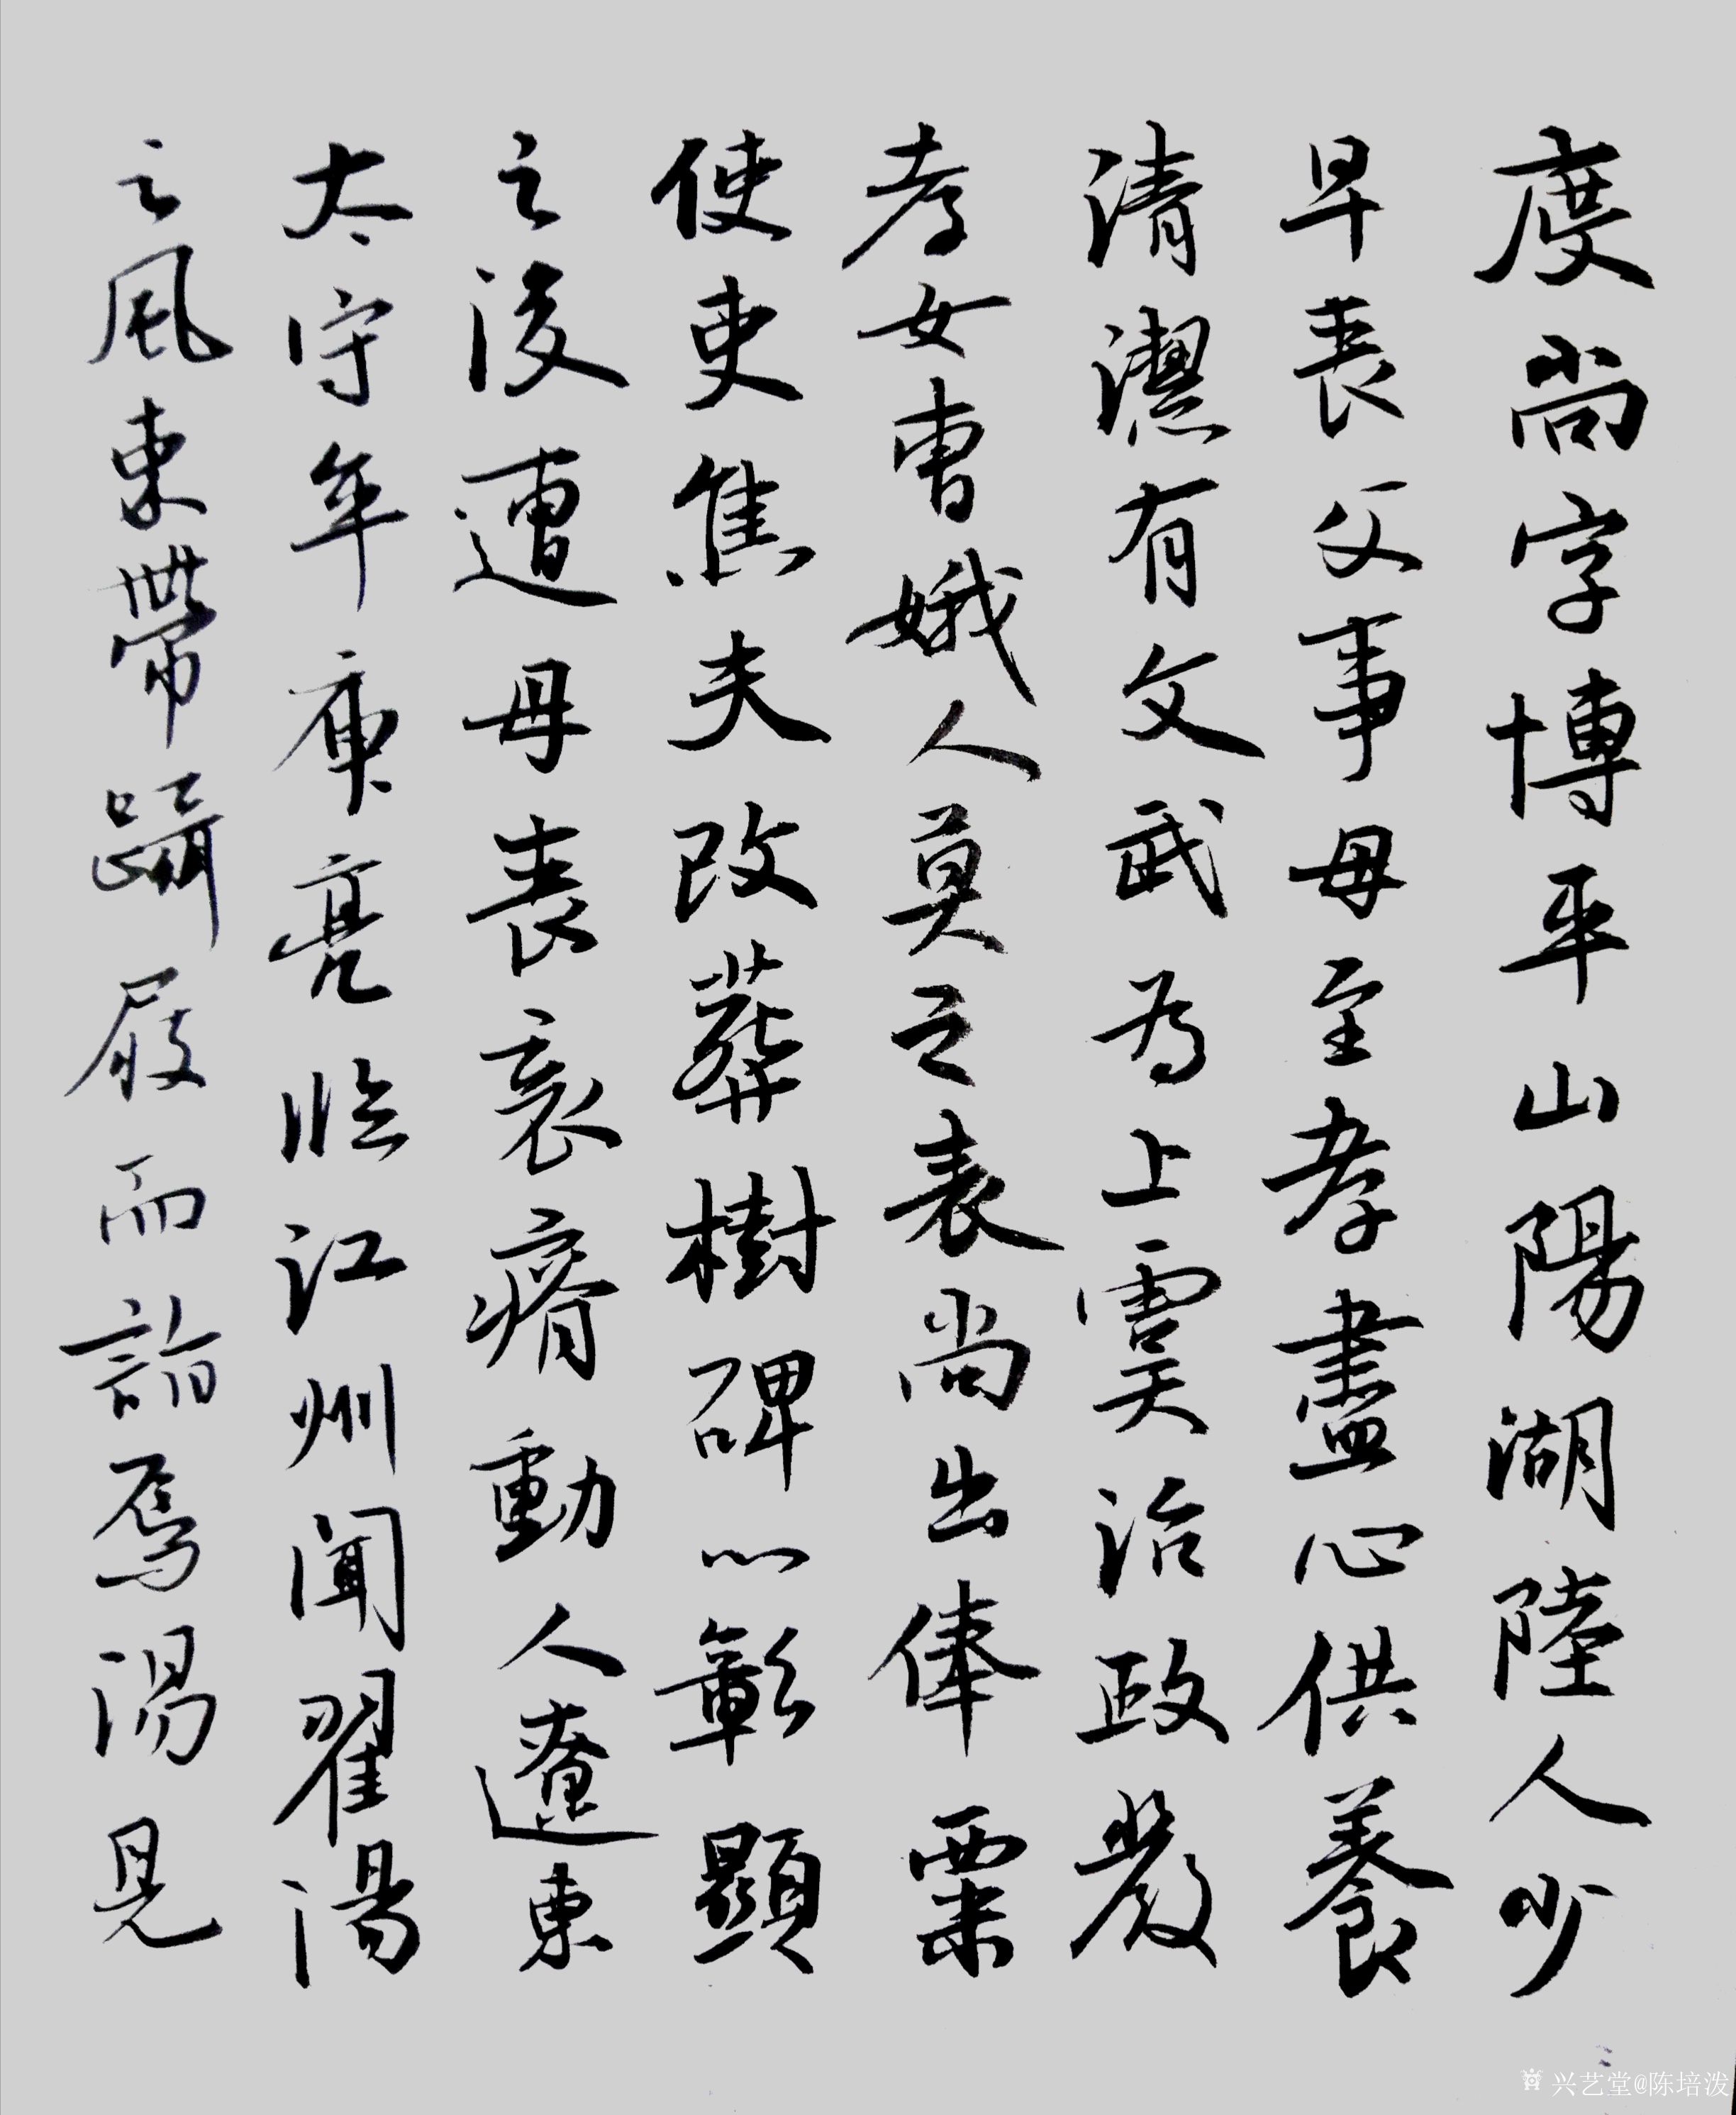 度尚字博平山陽湖陸人少
早喪父事母至孝盡心供養
清潔有文武為上虞治政嚴
孝女曹娥人莫之表尚出俸粟
使吏焦夫改葬樹碑以彰顯
之後遭母喪哀瘠動人遼東
太守年庾亮临江州闻翟湯
之風束帶躡屐而詣焉湯見
三
兴艺堂@陈培泼